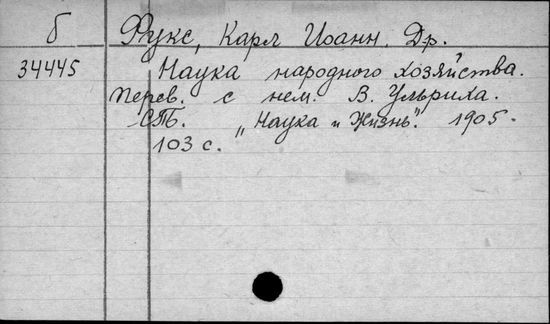 б Фукс, Карл Иоанн. Др.
34445 Наука народного хозяйства.
Перев. с нем. В. Ульриха.
СПБ. „Наука и Жизнь". 1905.
103 с.